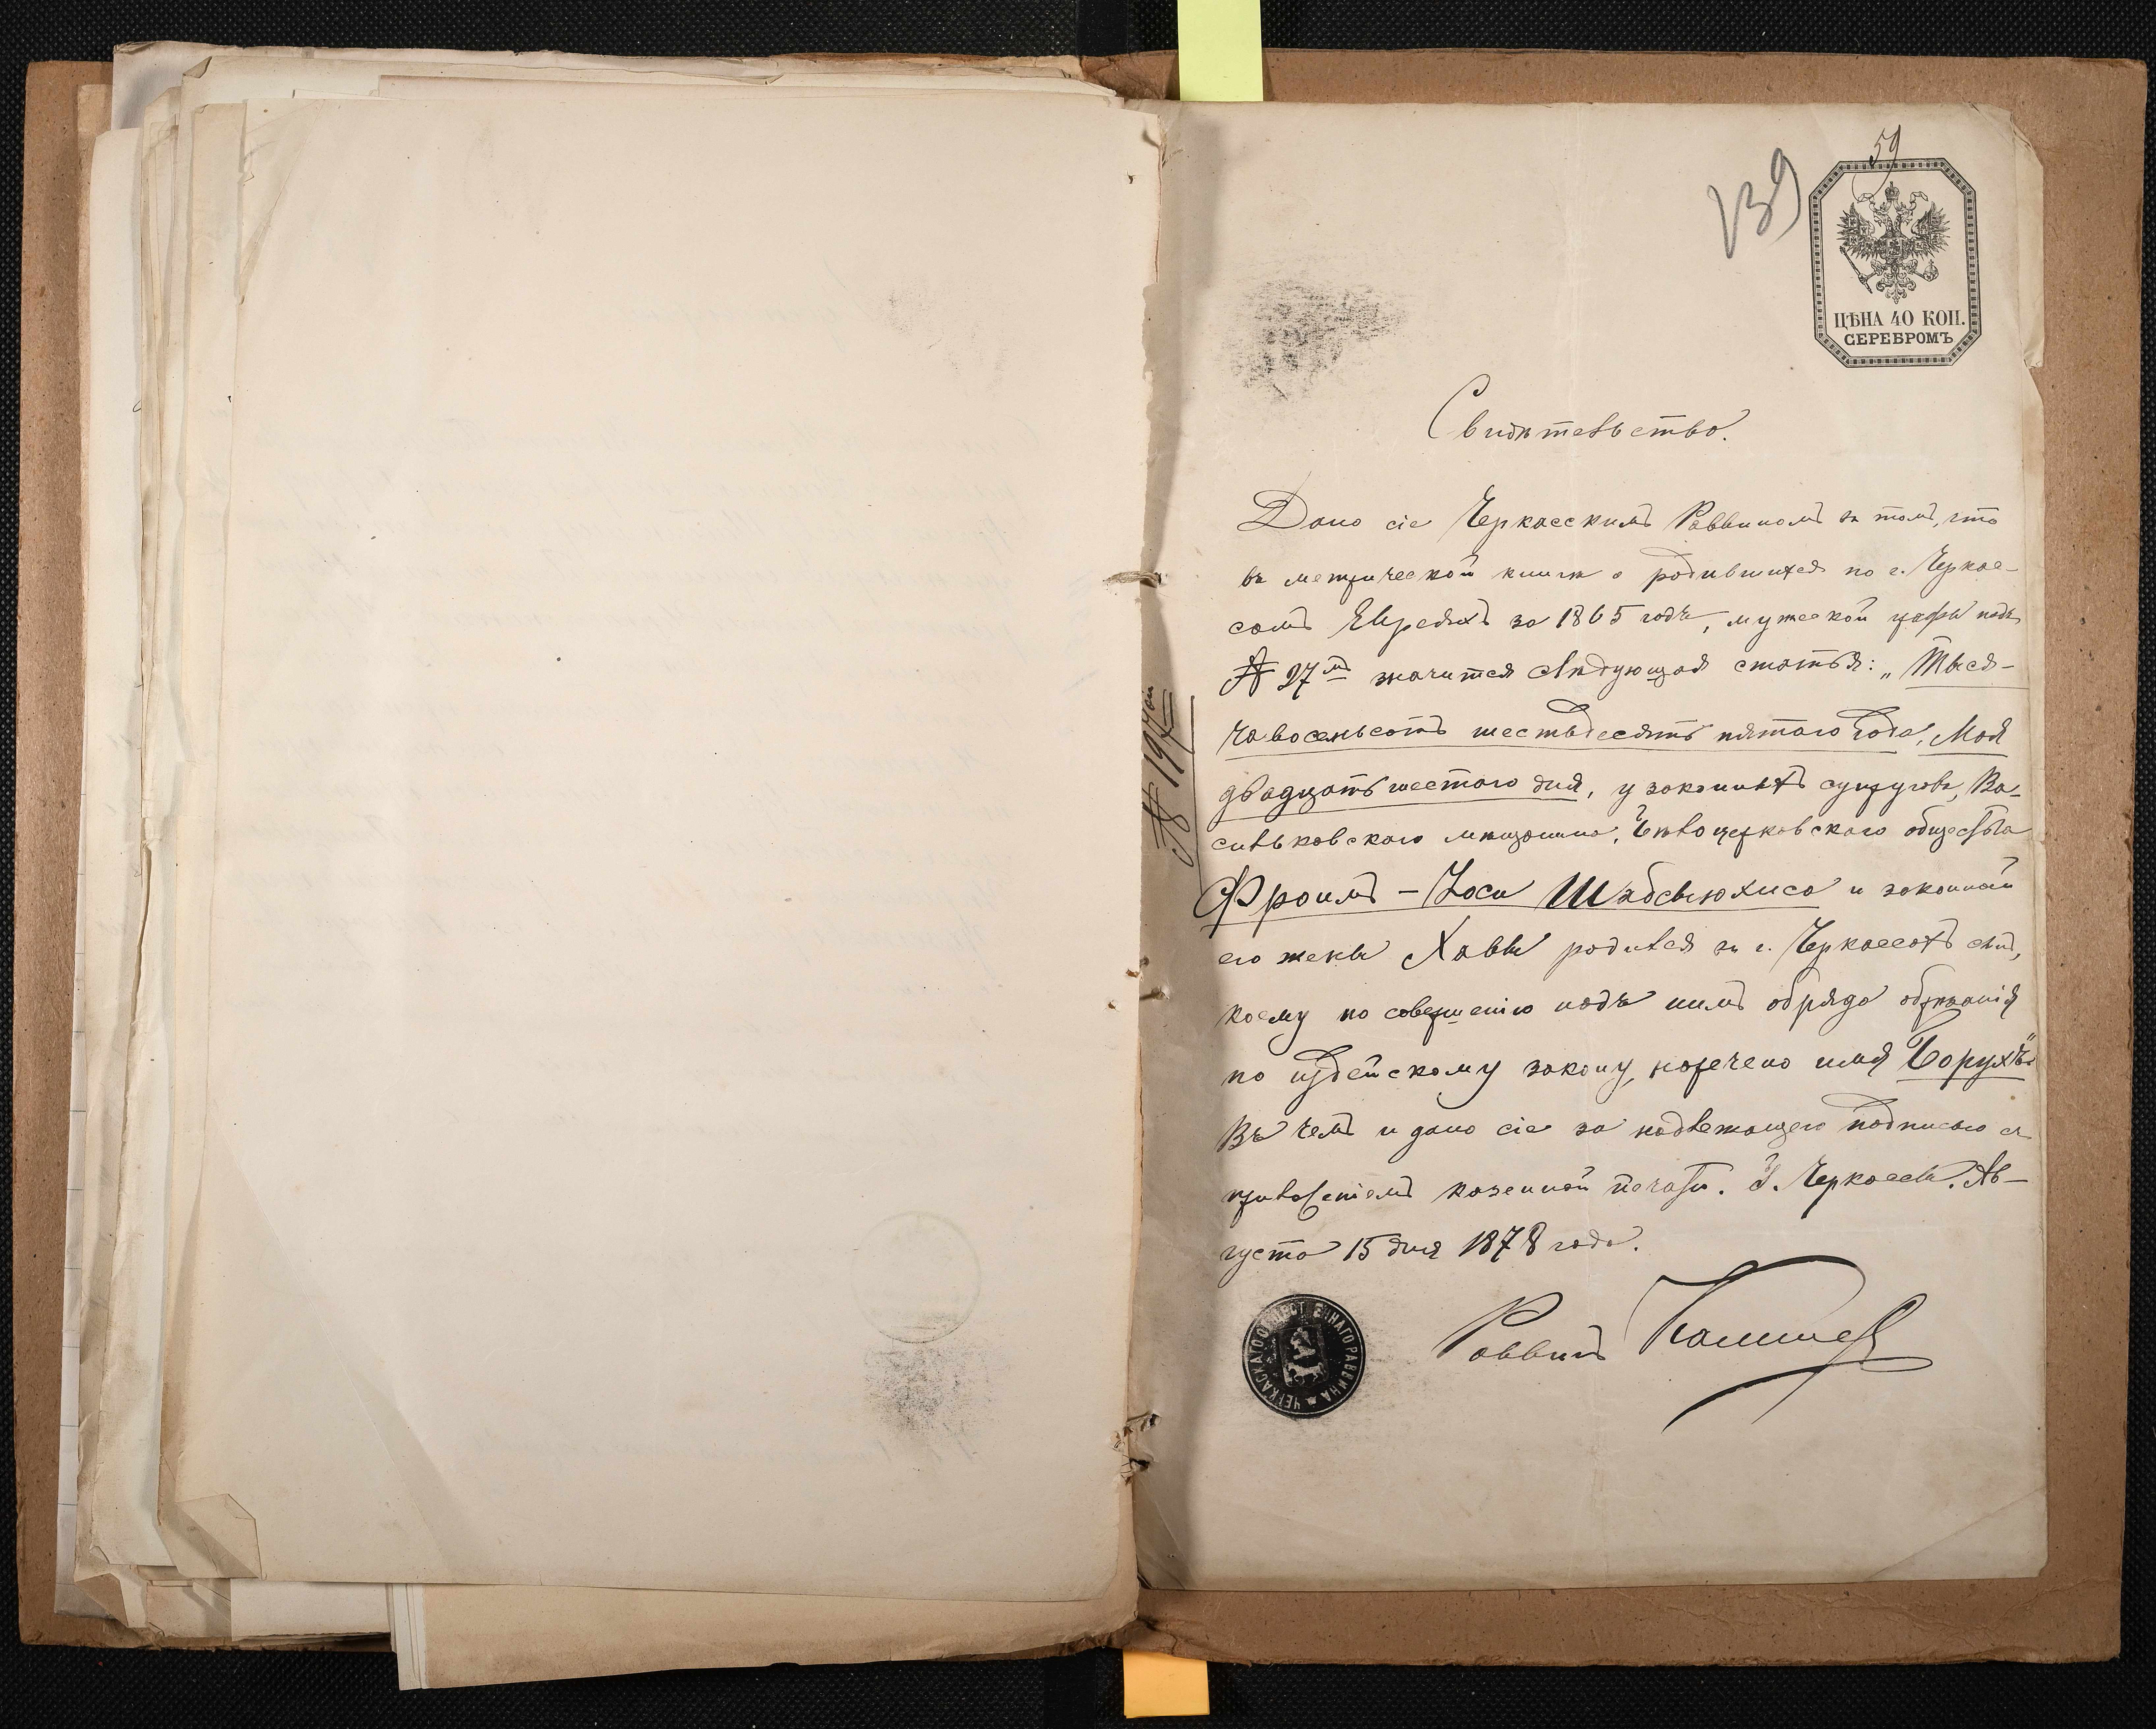 59
139
ЦѢНА 40 КОП.
СЕРЕБРОМЪ
Свидѣтельство.
Дано сіе Черкасскимъ Раввиномъ въ томъ, что
въ метрической книгѣ о родившихся по г. Черкас-
самъ Евреяхъ за 1865 годъ, мужеской графы подъ
№ 27мъ значится слѣдующая статья: „Тыся-
ча восемьсотъ шестьдесятъ пятаго года, Мая
двадцать шестаго дня, у законныхъ супруговъ, Ва-
сильковскаго мѣщанина, Бѣлоцерковскаго общества
Фроимъ-Іоси Шабсыюхиса и законной
его жены Хавы родился въ г. Черкассахъ сынъ,
коему по совершенію надъ нимъ обряда обрѣзанія
по іудейскому закону, наречено имя Борухъ"
Въ чемъ и дано сіе за надлежащею подписью съ
приложеніемъ казенной печати. Г. Черкассы. Ав-
густа 15 дня 1878 года.
Раввинъ
ЧЕРКАСКАГО ОБЩЕСТВЕННАГО РАВВИНА
№ 194ой